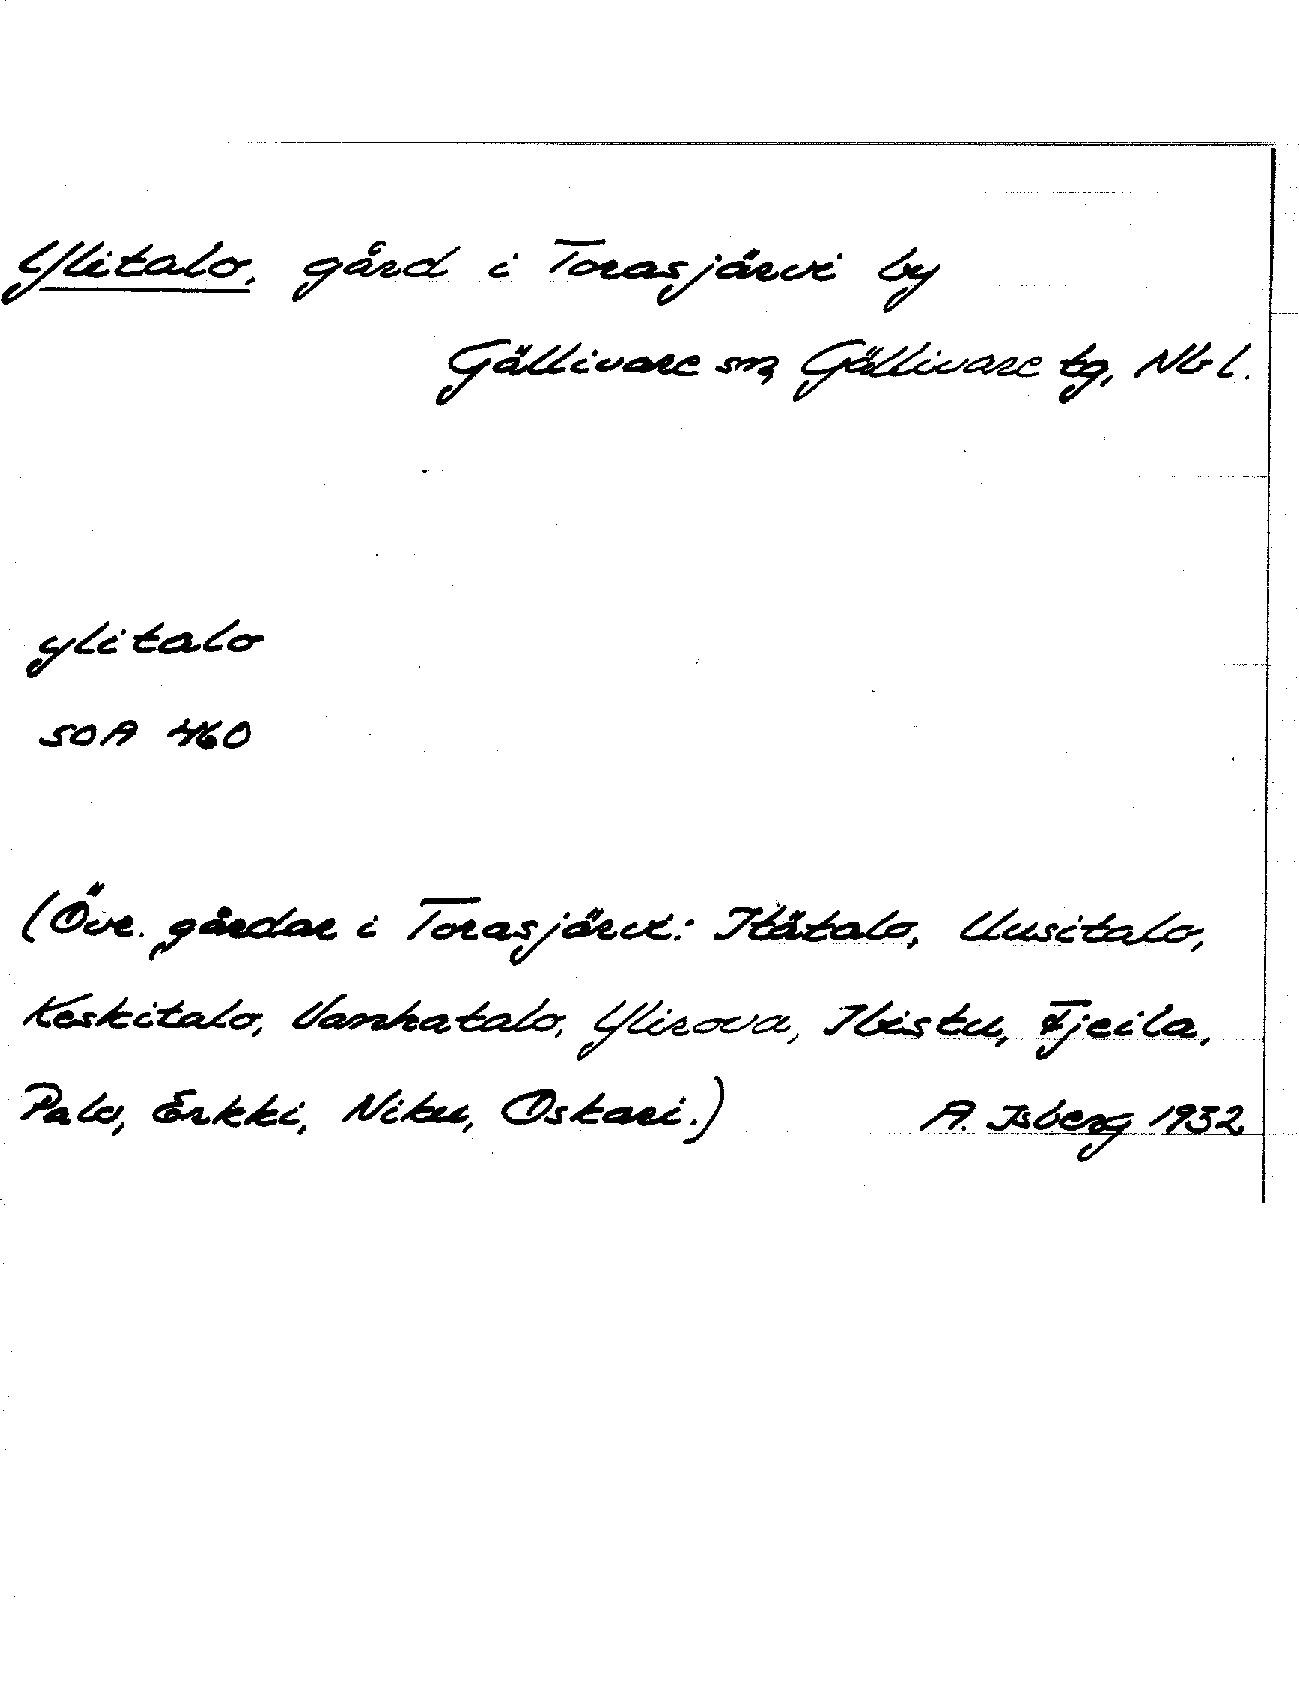 Ylitalo, gård i Torasjärvi by
Gällivare sn, Gällivare tg, Nb l.
ylitalo
SOA 460
(Övr. gårdar i Torasjärvi: Itätalo, Uusitalo,
Keskitalo, Vanhatalo, Ylirova, Ibistu, Fjeila,
Palo, Erkki, Niku, Oskari.) A. Isberg 1932